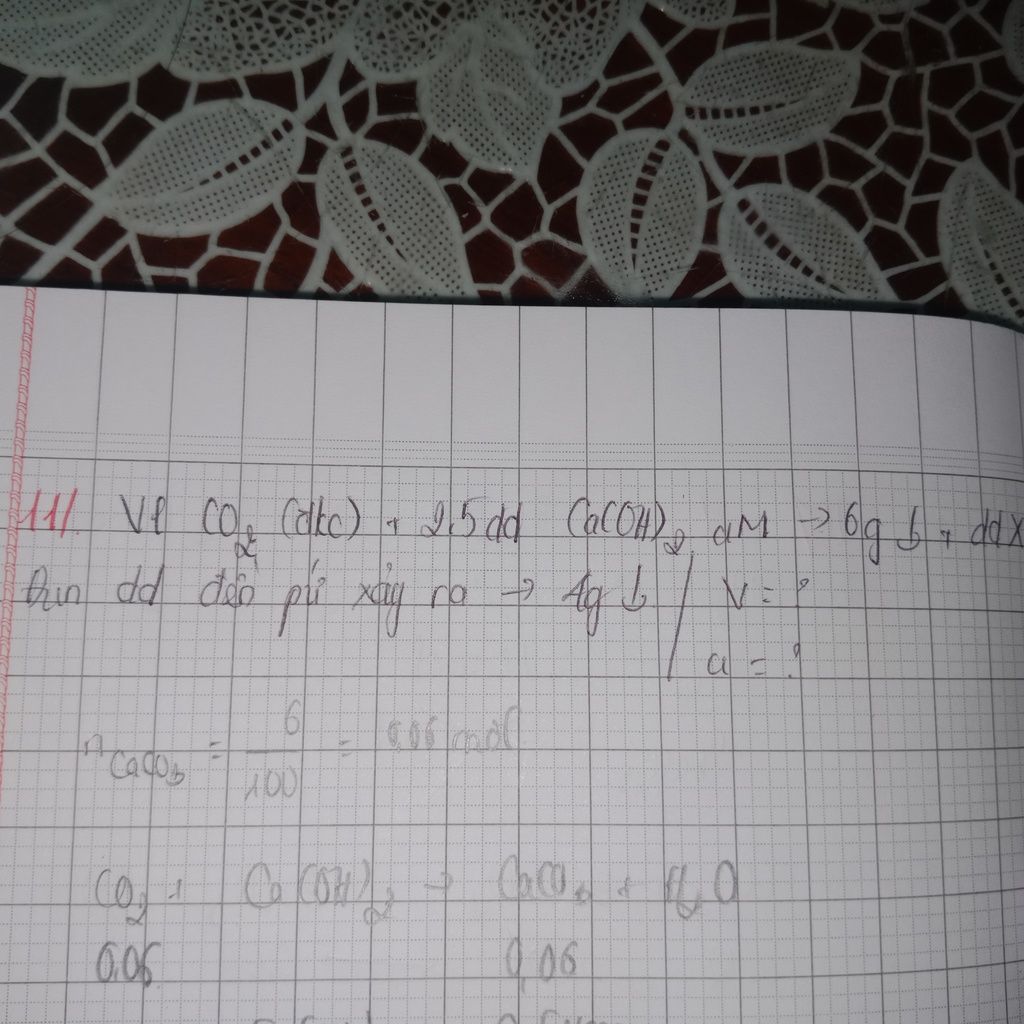 11/ Vl CO2 (đkc) + 2,5 dd Ca(OH)2 aM → 6g ↓ + ddX
đun dd đến pứ xảy ra → 4g ↓ / V = ?
a = ?
nCaCO3 = 6/100 = 0,06 mol
CO2 + Ca(OH)2 → CaCO3 + H2O
0,06 0,06